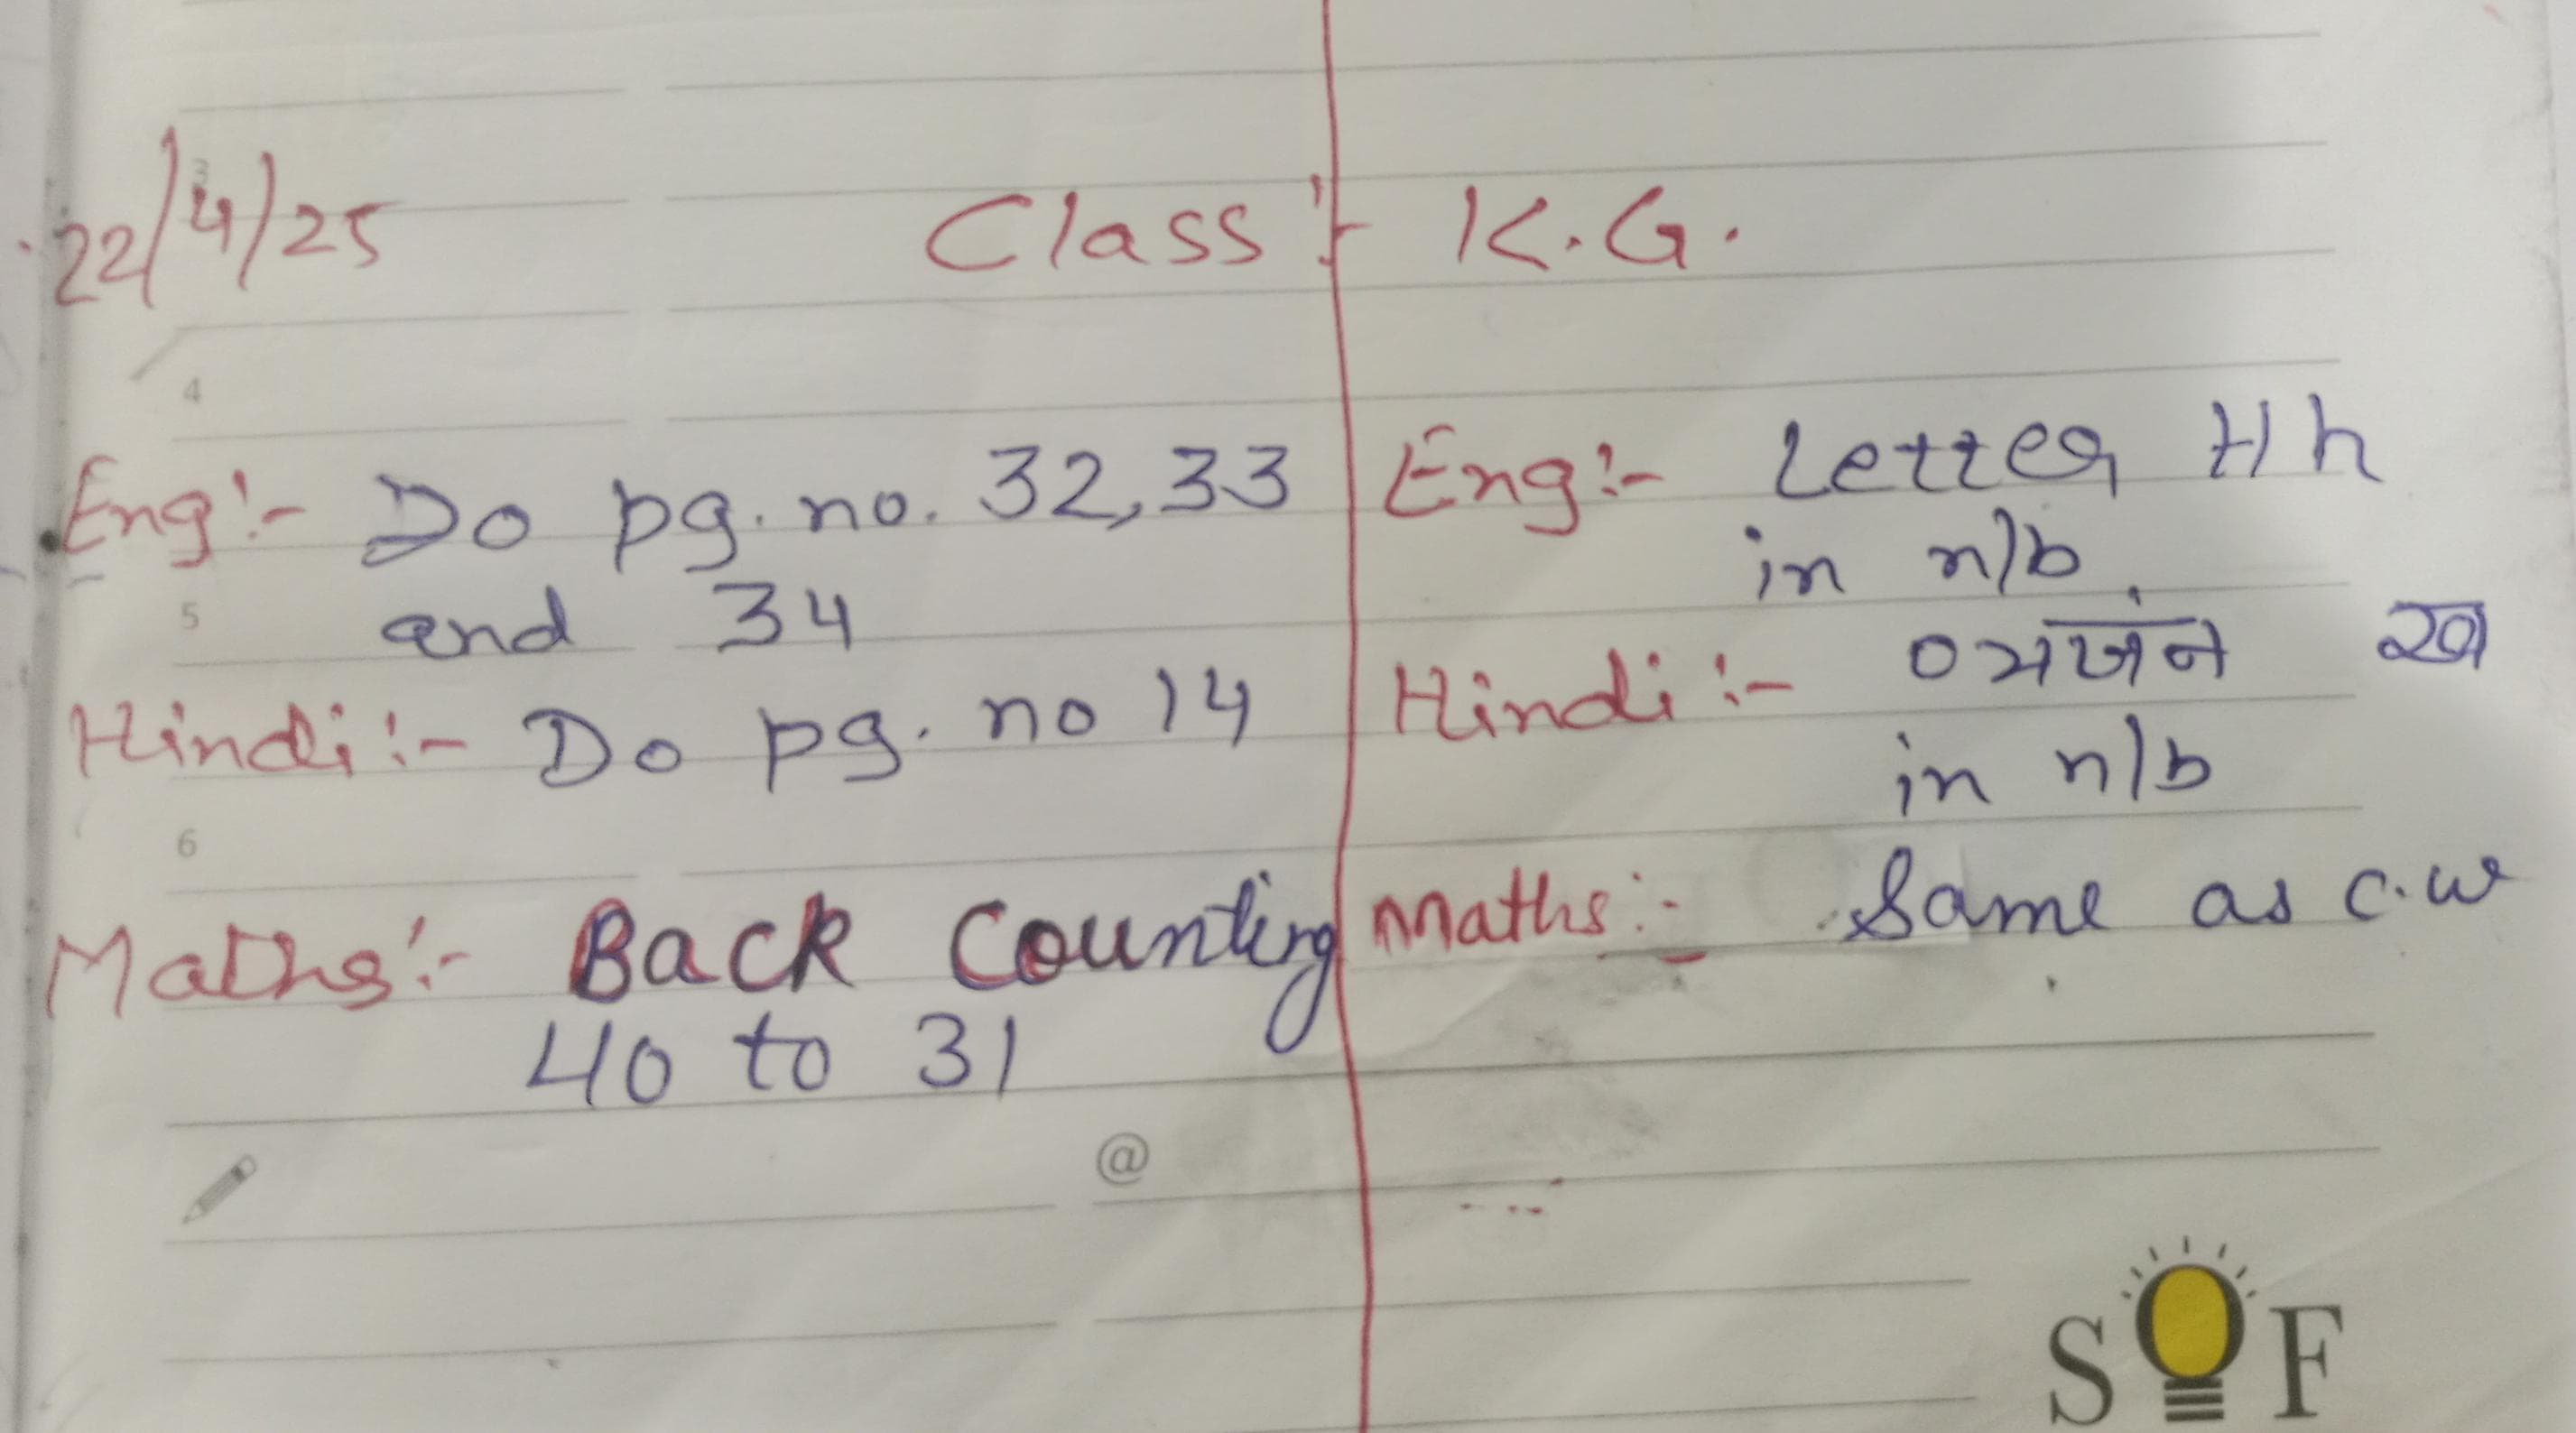 22/4/25 Class :- K.G.
Eng :- Do pg. no. 32, 33
and 34
Hindi :- Do pg. no 14
Maths :- Back Counting
40 to 31
Eng :- Letter Hh
in n/b
Hindi :- व्यजंन ख
in n/b
Maths :- Same as c.w
3
4
5
6
@
SOF